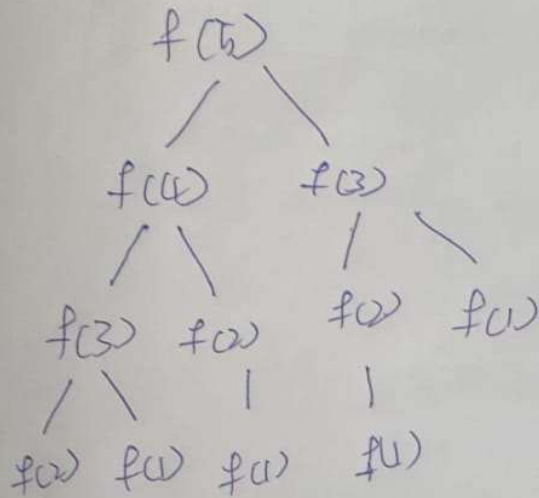 f(5)
f(4) f(3)
f(3) f(2) f(2) f(1)
f(2) f(1) f(1) f(1)